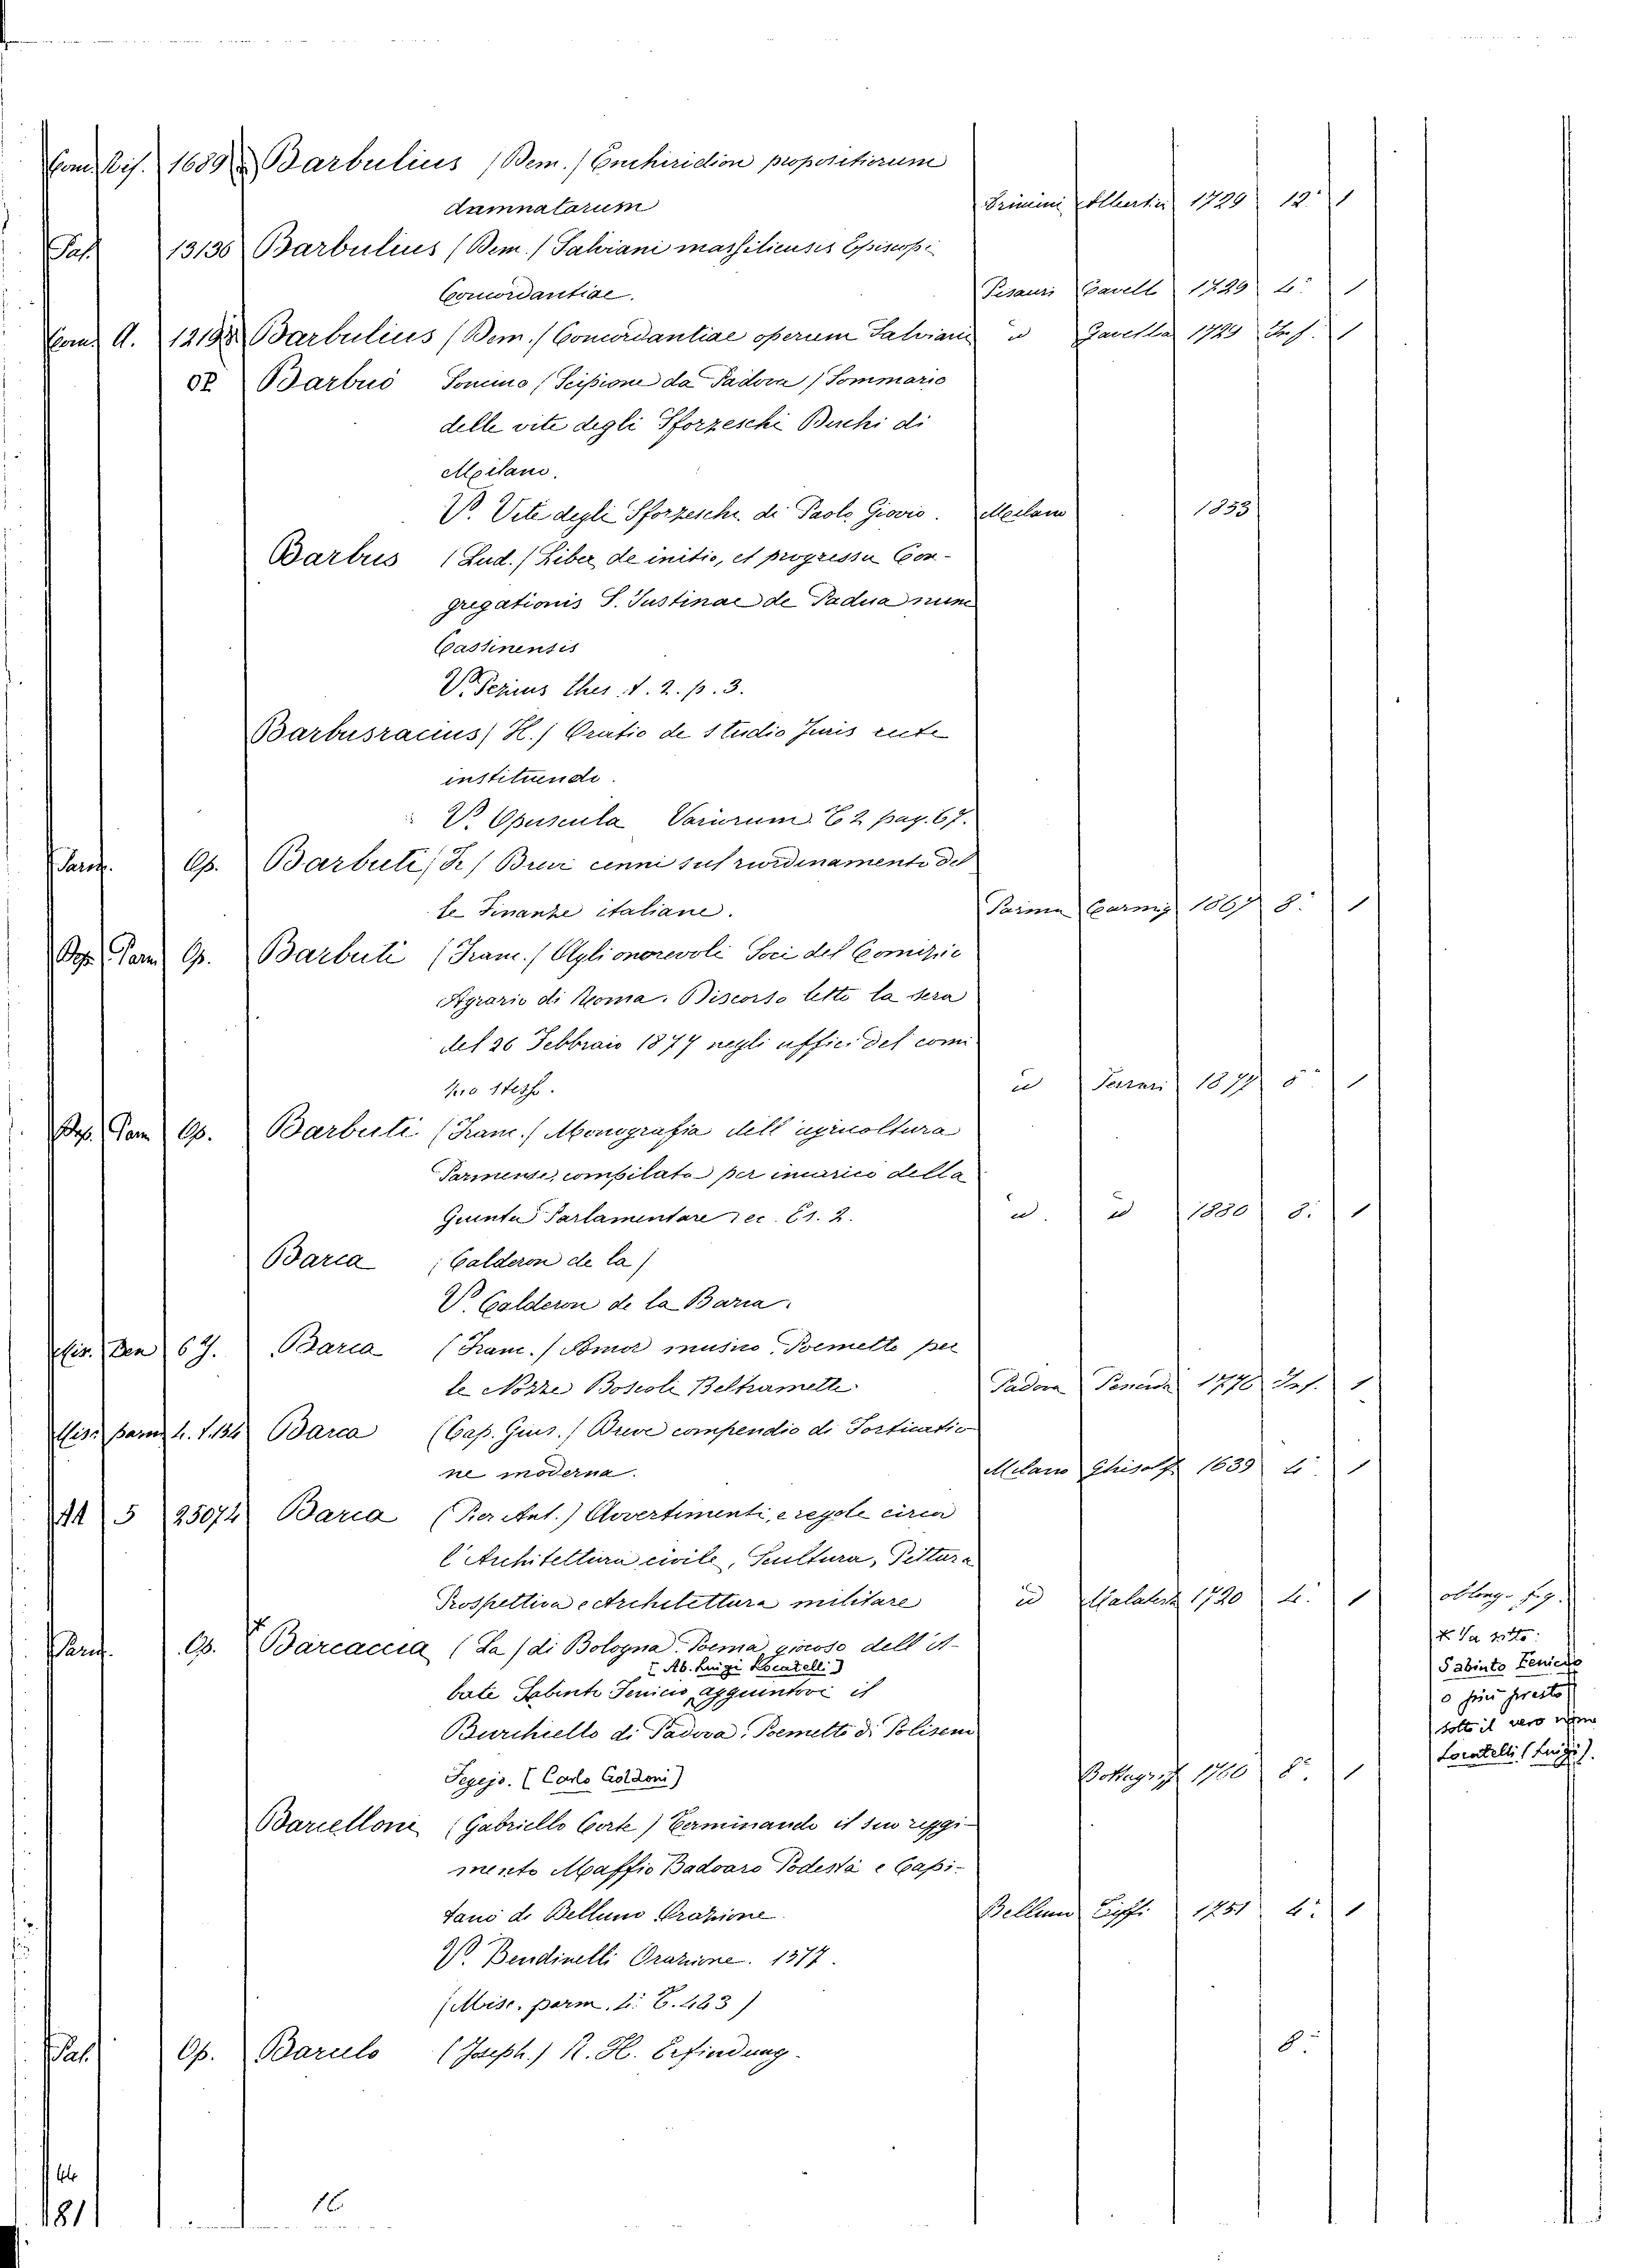 Com. Dis. 1689 Barbulius (Dem.) Enchiridion propositiorum
damnatarum Arimini Albertin 1729 12° 1
Pal. 13136 Barbulius (Dem.) Salviani massiliensis Episcopi
Concordantiae. Pisauri Gavell 1729 4° 1
Com. A. 12192 Barbulius (Dem.) Concordantiae operum Salviani id Gavella 1729 In f. 1
Barbuò Soncino (Scipione da Padova) Sommario
delle vite degli Sforzeschi Duchi di
Milano.
V. Vite degli Sforzeschi di Paolo Giovio. Milano 1853
Barbus (Lud.) Liber de initio, et progressu Con-
gregationis S. Justinae de Padua nunc
Cassinensis
V. Pezius thes. t. 2. p. 3.
Barbusracius (H.) Oratio de studio Juris
instituendi.
V. Opuscula Variorum t. 2 pag. 67.
Parm. Op. Barbuti, Brevi cenni sul riordinamento del
le Finanze italiane. Parma Carmig 1867 8° 1
Dep. Parm Op. Barbuti (Franc.) Agli onorevoli Soci del Comizio
Agrario di Roma. Discorso letto la sera
del 26 Febbraio 1877 negli uffici del comi
zio stesso. id Ferrari 1877 8° 1
Dep. Parm Op. Barbuti (Franc.) Monografia dell'agricoltura
Parmense, compilata per incarico della
Giunta Parlamentare ec. t. 1. 2. id. id 1880 8° 1
Barca (Calderon de la)
V. Calderon de la Barca.
Mis. Ven 67. Barca (Franc.) Amor musico, Poemetto per
le Nozze Boscoli Beltramelli Padova Penada 1776 In f. 1
Misc parm 4. T. 134 Barca (Cap. Gius.) Breve compendio di Fortificatio
ne moderna. Milano Ghisolf 1639 4° 1
AA 5 25074 Barca (Pier Ant.) Avvertimenti, e regole circa
l'Architettura civile, Scultura, Pittura
Prospettiva e Architettura militare id Malatesta 1720 4° 1 oblong. fig.
Parm. Op. Barcaccia (La) di Bologna. Poema giocoso dell'A-
[Ab. Luigi Locatelli]
bate Sabinto Fenicio, aggiuntovi il
Burchiello di Padova, Poemetto di Polisseno
Fegejo. (Carlo Goldoni) Bottagrif 1760 8° 1
Sabinto Fenicio
o più presto
sotto il vero nome
Locatelli (Luigi).
Barcelloni (Gabriello Corte) Terminando il suo reggi-
mento Maffio Badoaro Podestà e Capi-
tano di Belluno Orazione. Belluno Tissi 1751 4° 1
V. Bendinelli Orazione. 1377.
(Misc. parm. 4. T. 423)
Pal. Op. Barcelo (Joseph.) K. H. Erfindung. 8°
44
181
16